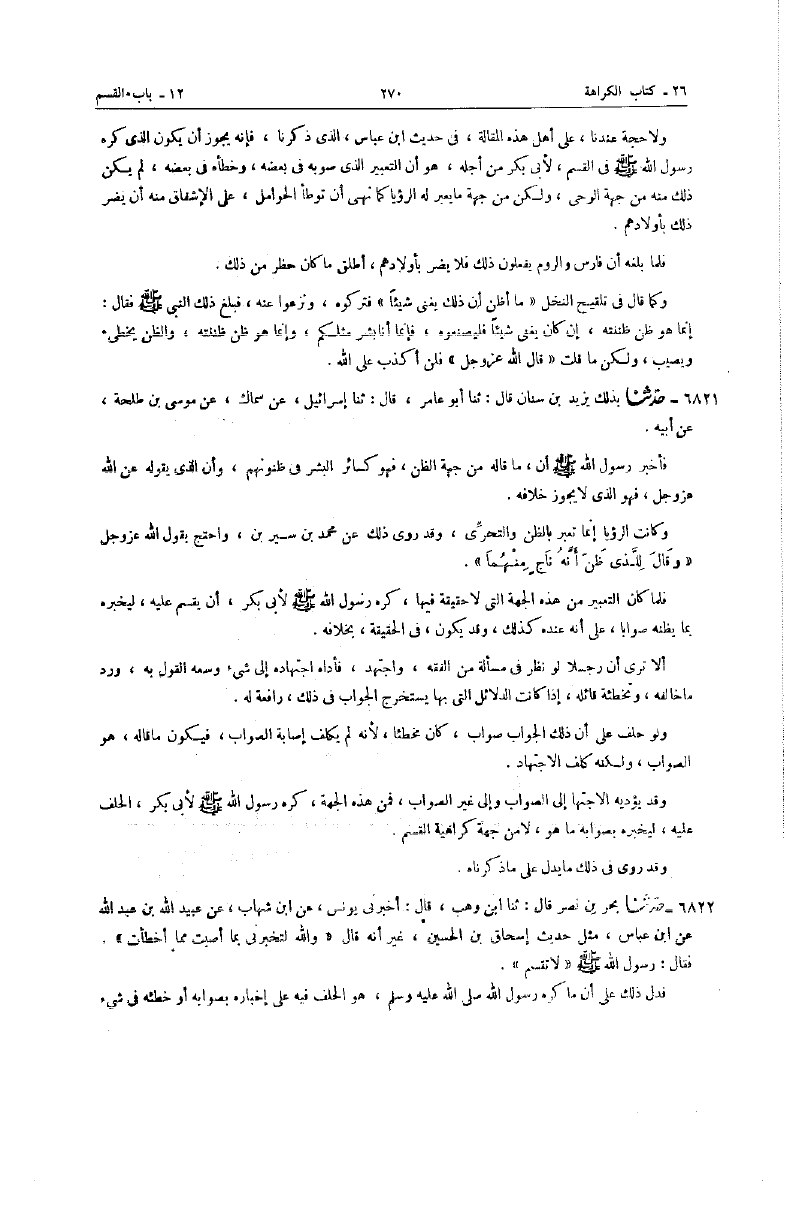 ٢٦ - كتاب الكراهة ٢٧٠ ١٢ - باب القسم
ولاحجة عندنا ، على أهل هذه المقالة ، فى حديث ابن عباس ، الذى ذكرنا ، فإنه يجوز أن يكون الذى كره
رسول الله ﷺ فى القسم ، لأبى بكر من أجله ، هو أن التعبير الذى صوبه فى بعضه ، وخطأه فى بعضه ، لم يكن
ذلك منه من جهة الوحى ، ولكن من جهة مايعبر له الرؤيا كما نهى أن توطأ الحوامل ، على الإشفاق منه أن يضر
ذلك بأولادهم .
فلما بلغه أن فارس والروم يفعلون ذلك فلا يضر بأولادهم ، أطلق ما كان حظر من ذلك .
وكما قال فى تلقيح النخل « ما أظن أن ذلك يغنى شيئاً » فتركوه ، ونزعوا عنه ، فبلغ ذلك النبى ﷺ فقال :
إنما هو ظن ظننته ، إن كان يغنى شيئاً فليصنعوه ، فإنما أنا بشر مثلكم ، وإنما هو ظن ظننته ، والظن يخطىء
ويصيب ، ولكن ما قلت « قال الله عزوجل » فلن أكذب على الله .
٦٨٢١ - حدثنا بذلك يزيد بن سنان قال : ثنا أبو عامر ، قال : ثنا إسرائيل ، عن سماك ، عن موسى بن طلحة ،
عن أبيه .
فأخبر رسول الله ﷺ أن ، ما قاله من جهة الظن ، فهو كسائر البشر فى ظنونهم ، وأن الذى يقوله عن الله
عزوجل ، فهو الذى لايجوز خلافه .
وكانت الرؤيا إنما تعبر بالظن والتحرى ، وقد روى ذلك عن محمد بن سير بن ، واحتج بقول الله عزوجل
« وَقَالَ لِلَّذى ظَنَّ أَنَّهُ نَاجٍ مِنْهُمَا » .
فلما كان التعبير من هذه الجهة التى لاحقيقة فيها ، كره رسول الله ﷺ لأبى بكر ، أن يقسم عليه ، ليخبره
بما يظنه صوابا ، على أنه عنده كذلك ، وقد يكون ، فى الحقيقة ، بخلافه .
ألا ترى أن رجلا لو نظر فى مسألة من الفقه ، واجتهد ، فأداه اجتهاده إلى شىء وسعه القول به ، ورد
ماخالفه ، وتخطئة قائله ، إذا كانت الدلائل التى بها يستخرج الجواب فى ذلك ، رافعة له .
ولو حلف على أن ذلك الجواب صواب ، كان مخطئا ، لأنه لم يكلف إصابة الصواب ، فيكون ماقاله ، هو
الصواب ، ولكنه كلف الاجتهاد .
وقد يؤديه الاجتها إلى الصواب وإلى غير الصواب ، فمن هذه الجهة ، كره رسول الله ﷺ لأبى بكر ، الحلف
عليه ، ليخبره بصوابه ما هو ، لامن جهة كراهية القسم .
وقد روى فى ذلك مايدل على ماذكرناه .
٦٨٢٢ - حدثنا بحر بن نصر قال : ثنا ابن وهب ، قال : أخبرنى يونس ، عن ابن شهاب ، عن عبيد الله بن عبد الله
عن ابن عباس ، مثل حديث إسحاق بن الحسين ، غير أنه قال « والله لتخبرنى بما أصبت مما أخطأت » .
فقال : رسول الله ﷺ « لا تقسم » .
فدل ذلك على أن ما كره رسول الله صلى الله عليه وسلم ، هو الحلف فيه على إخباره بصوابه أو خطئه فى شىء